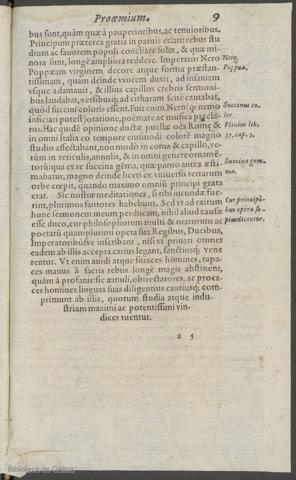 Proœmium. 9
bus sunt, quàm quæ à pauperioribus, ac tenuioribus.
Principum præterea gratia in paruis etiam rebus stu
dium ac fauorem populi conciliare solet, & quæ mi-
nora sunt, longè ampliora reddere. Imperator Nero
Poppæam virginem decore atque forma præstan-
tissimam, quam deinde vxorem duxit, ad insaniam
vsque adamauit, & illius capillos crebris sermoni-
bus laudabat, versibusq; ad citharam scitè cantabat,
quòd succini colores essent. Fuit enim Nero (
inficiari potest) oratoriæ, poëmatæ ac musicæ præcla-
rus. Hac quidē opinione ductæ puellæ oēs Romę &
in omni Italia eo tempore eiusmodi colorē magno
studio affectabant, non modò in coma & capillo, ve-
rùm in reticulis, annulis, & in omni genere ornamē-
torū: qua ex re succina gēma, quæ paruo antea æsti-
mabatur, magno deinde liceri ex vniuerso terrarum
orbe cœpit, quando maximo omniū principi grata
erat. Sic nostræ meditationes, si tibi iucundæ fue-
rint, plurimos fautores habebunt. Sed vt ad exitum
hunc sermonem meum perducam, nihil aliud causæ
esse duco, cur philosophorum multi & oratorum ac
poetarū quamplurimi opera sua Regibus, Ducibus,
Imperatoribúsve inscribant, nisi vt priuati omnes
eadem ab illis accepta carius legant, sanctiúsq; vene
rentur. Vt enim auidi atque furaces homines, rapa-
ces manus à sacris rebus longè magis abstinent,
quàm à profanis: sic æmuli, obtrectatores, ac proca-
ces homines linguas suas diligentius cautiúsq; com-
primunt ab illis, quorum studia atque indu-
striam maximi ac potentissimi vin-
dices tuentur.
a 5
Nero.
Poppæa.
Succinus co-
lor.
Plinius lib.
37. cap. 3.
Succina gem-
ma.
Cur principi-
bus opera sa-
pius dicentur.
Biblioteca de Galicia